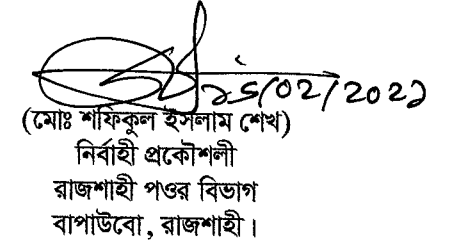 (মোঃ শফিকুল ইসলাম শেখ)
নির্বাহী প্রকৌশলী
রাজশাহী পওর বিভাগ
বাপাউবো, রাজশাহী।